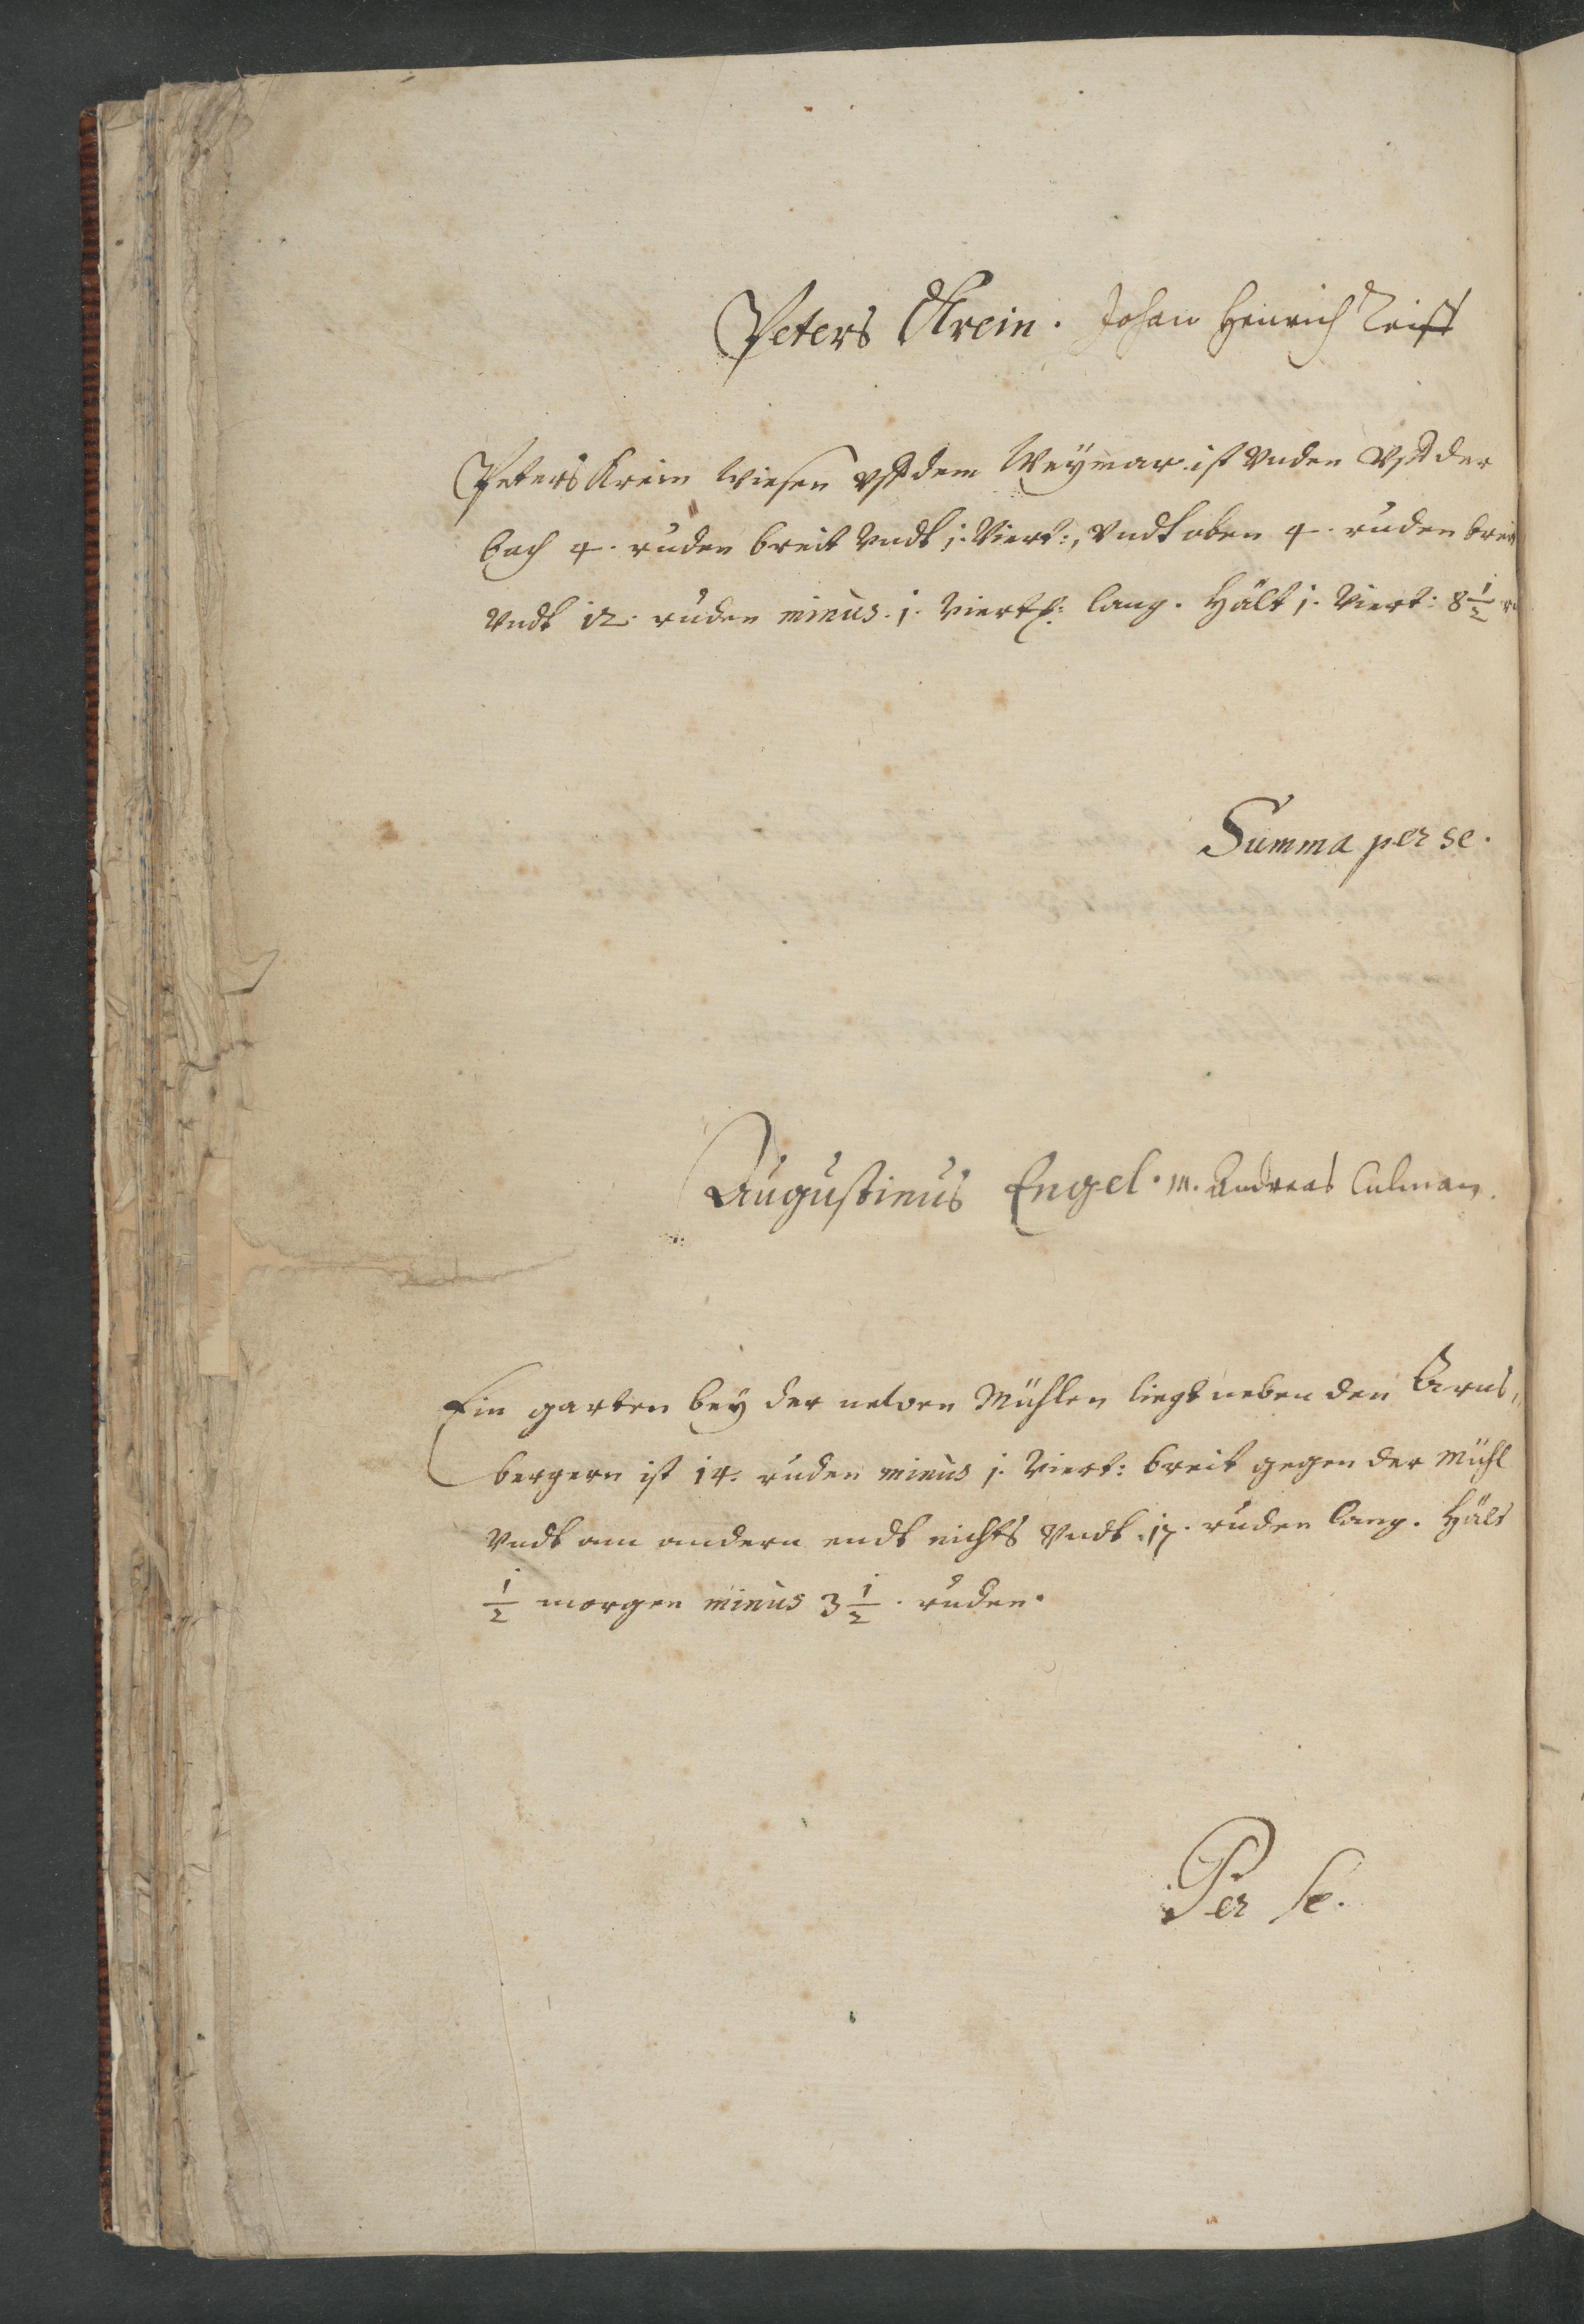 Peters Krein. Johan Henrich Reifft
Peters Krein wiesen vff dem Weÿmar ist vnden vff der
bach 4. ruden breit vndt j. Viert:, vndt oben 4. ruden breit
vndt 12. ruden minus. j. Viert: lang. Hält j. Viert: 8 1/2
Summa per se.
Augustinus Engel. M. Andreas Culman.
Ein garten beÿ der newen Mühlen liegt neben den Arns,
bergern ist 14. ruden minus j. Viert: breit gegen der Mühl
vndt am andern endt nichts vndt 17. ruden lang. Hält
1/2 morgen minus 3 1/2. ruden.
Per se.